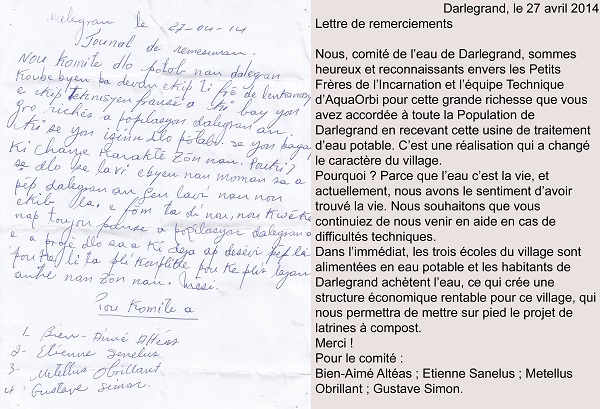 Darlegran le 27-04-14
Jounal de remesiman.
Nou Komite dlo potab nan dalegran
Koube byen ba devan ekip ti frè de lenkanasyon
e ekip teknisyen franse a ki bay yon
gro richès a popilasyon dalegran an.
Ki se yon isin dlo potab. se yon bagay
Ki Change Karaktè Zòn nan. Poukri?
se dlo se lavi ebyen nan moman sa a
pèp dalegran an gen lavi nan nou
ekib la. e fòm ta di nou, nou Kwè ke
nap toujou panse a popilasyon dalegran a
e a projè dlo sa a ki deja ap desèvi pèp la
pou ke li ta pli konplète pou ke plis lajan
antre nan zòn nan. Mesi.
Pou Komite a
1. Bien-Aimé Altéas
2- Etienne Senelus
3- Metellus Obrillant
4- Gustave Simon.
Darlegrand, le 27 avril 2014
Lettre de remerciements
Nous, comité de l’eau de Darlegrand, sommes
heureux et reconnaissants envers les Petits
Frères de l’Incarnation et l’équipe Technique
d’AquaOrbi pour cette grande richesse que vous
avez accordée à toute la Population de
Darlegrand en recevant cette usine de traitement
d’eau potable. C’est une réalisation qui a changé
le caractère du village.
Pourquoi ? Parce que l’eau c’est la vie, et
actuellement, nous avons le sentiment d’avoir
trouvé la vie. Nous souhaitons que vous
continuiez de nous venir en aide en cas de
difficultés techniques.
Dans l’immédiat, les trois écoles du village sont
alimentées en eau potable et les habitants de
Darlegrand achètent l’eau, ce qui crée une
structure économique rentable pour ce village, qui
nous permettra de mettre sur pied le projet de
latrines à compost.
Merci !
Pour le comité :
Bien-Aimé Altéas ; Etienne Sanelus ; Metellus
Obrillant ; Gustave Simon.